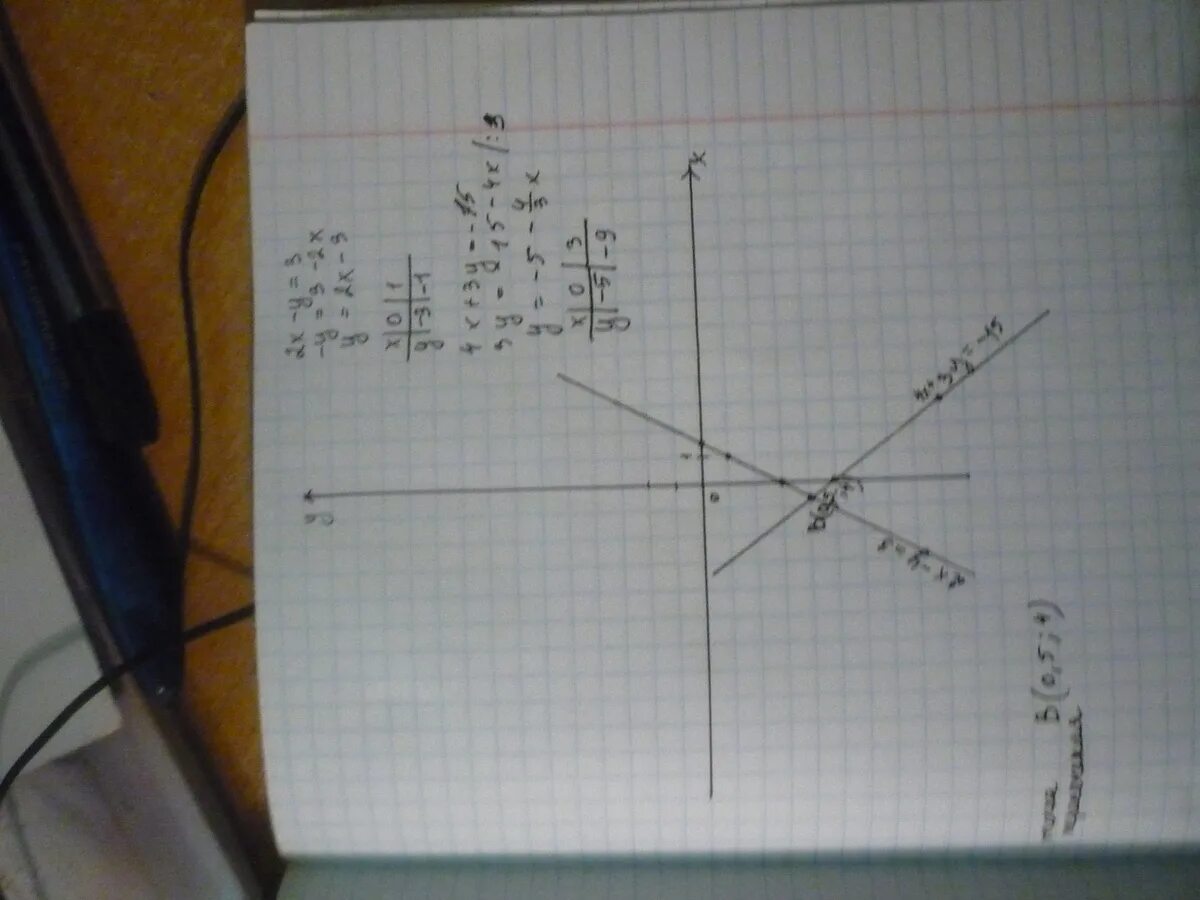 2x - y = 3
-y = 3 - 2x
y = 2x - 3
x | 0 | 1
y | -3 | -1
4x + 3y = -15
3y = 15 - 4x /:3
y = -5 - 4/3 x
x | 0 | 3
y | -5 | -9
y
x
1
0
4x + 3y = -15
2x - y = 3
точка B(0,5; 4)